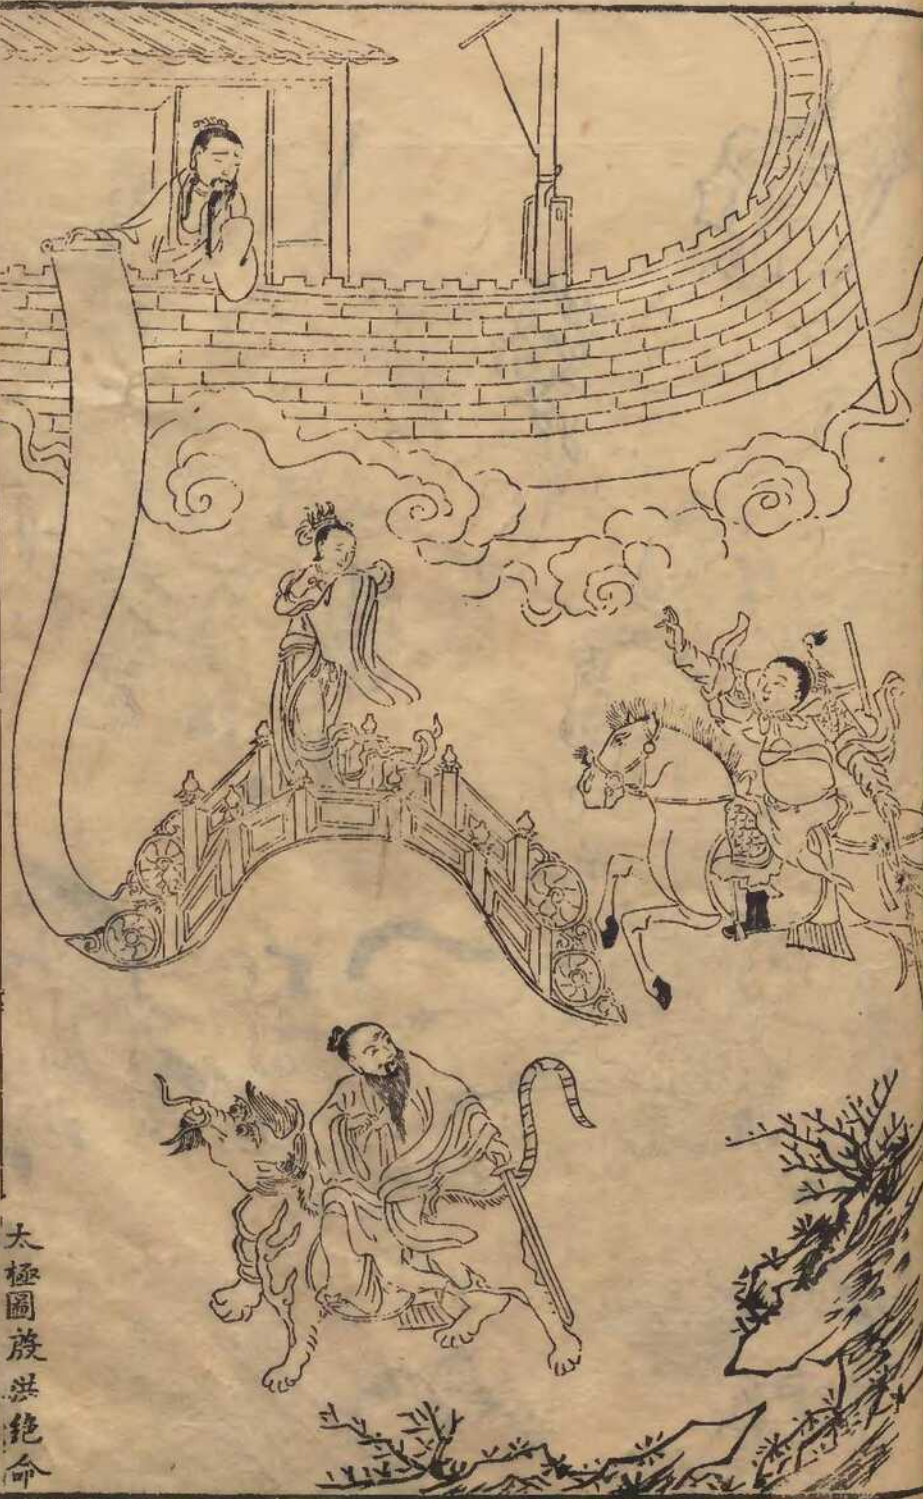 太極圖殷洪絶命